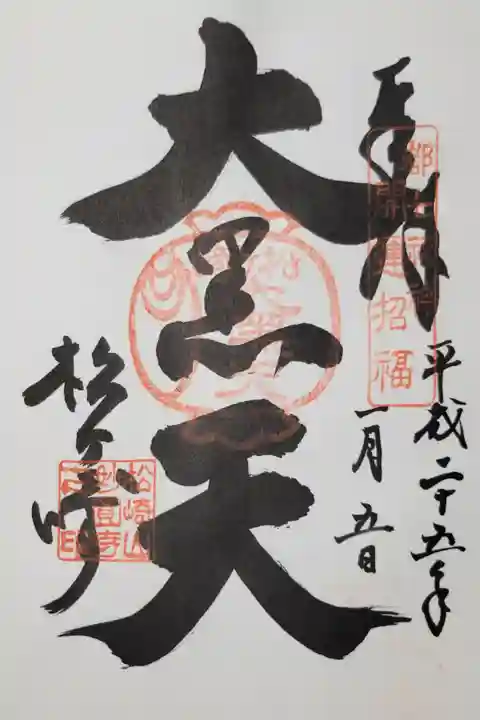 奉拝
都七福神
開運招福
平成二十五年
一月五日
大黒天
松ヶ崎
松崎山
妙円寺